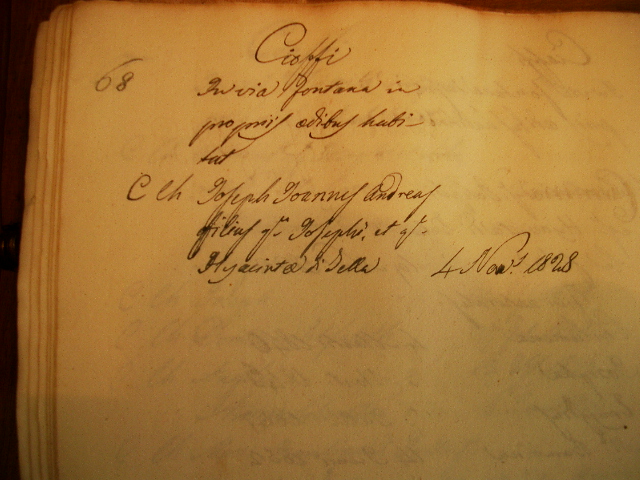 Cioffi
68 In via Fontana in
propriis ædibus habi-
tat
C Ch Joseph Joannes Andreas
filius qm Josephi, et qm
Hyacintæ di Lella 4 Novs 1828